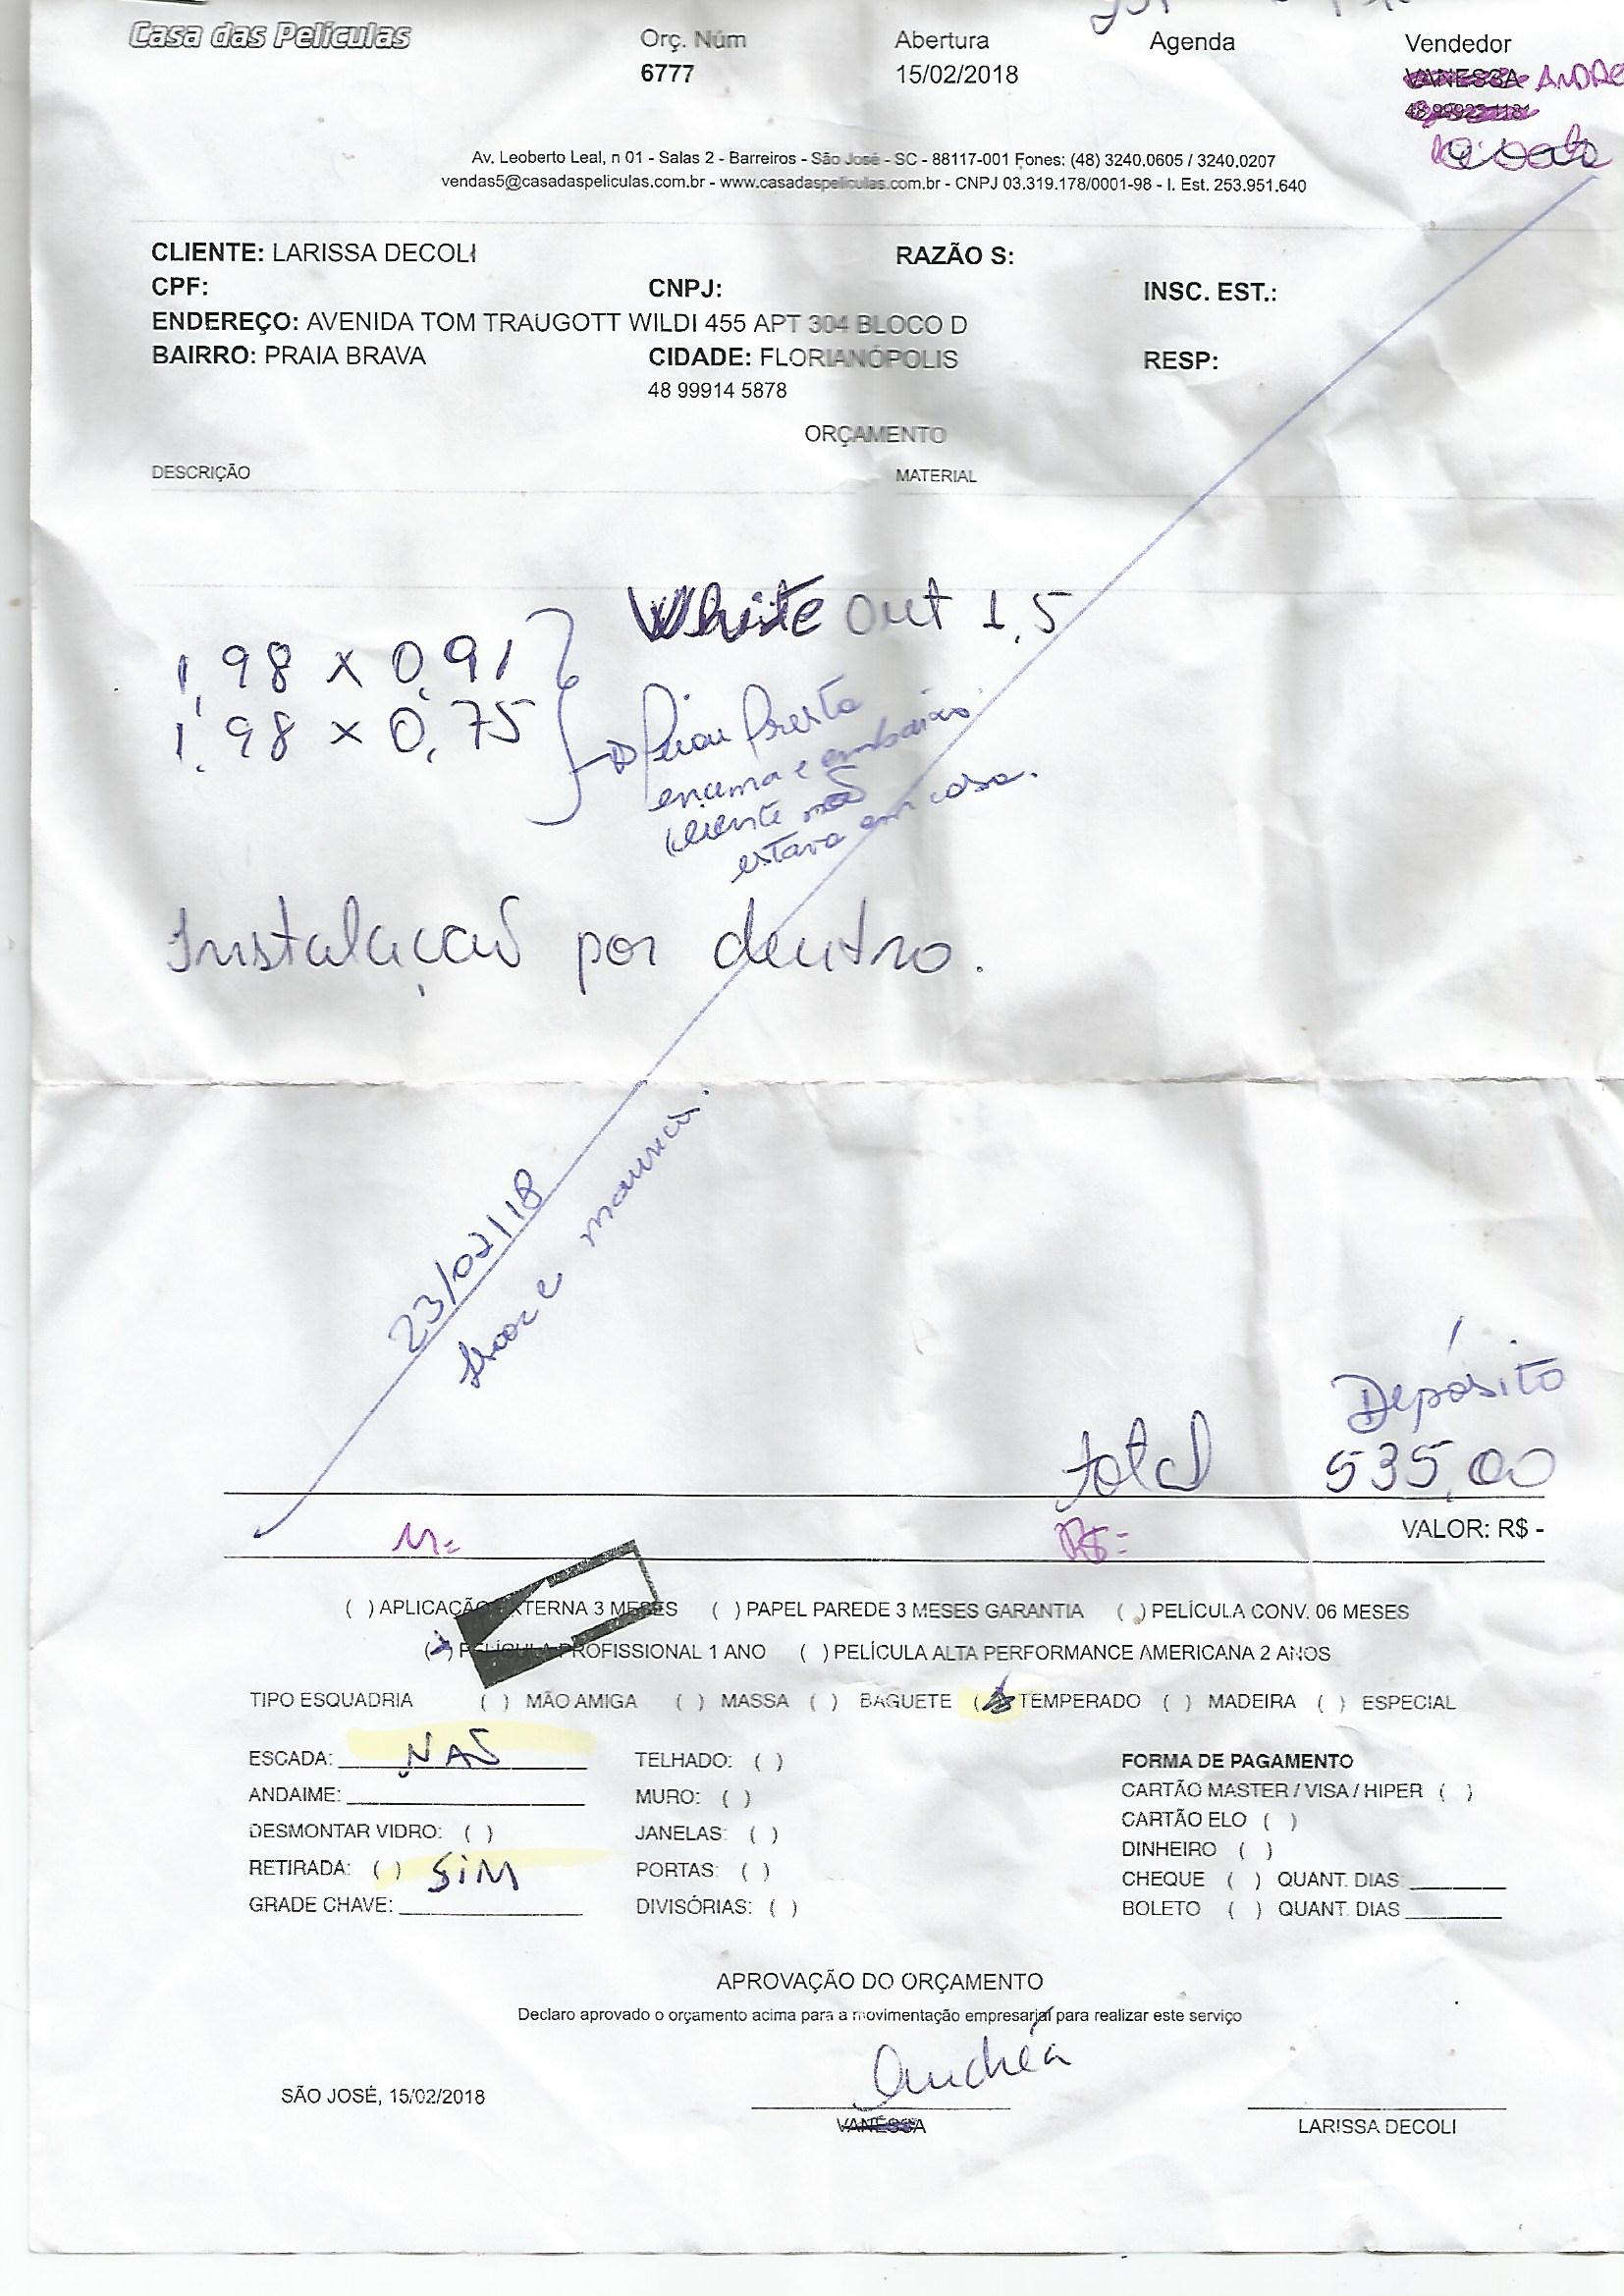 Casa das Películas
Orç. Núm
6777
Abertura
15/02/2018
Agenda
Vendedor
VANESSA ANDRE
48 99922 1181
Av. Leoberto Leal, n 01 - Salas 2 - Barreiros - São José - SC - 88117-001 Fones: (48) 3240.0605 / 3240.0207
vendas5@casadaspeliculas.com.br - www.casadaspeliculas.com.br - CNPJ 03.319.178/0001-98 - I. Est. 253.951.640
CLIENTE: LARISSA DECOLI RAZÃO S:
CPF: CNPJ: INSC. EST.:
ENDEREÇO: AVENIDA TOM TRAUGOTT WILDI 455 APT 304 BLOCO D
BAIRRO: PRAIA BRAVA CIDADE: FLORIANÓPOLIS RESP:
48 99914 5878
ORÇAMENTO
DESCRIÇÃO MATERIAL
White Out 1,5
1,98 x 0,91
1,98 x 0,75
encima e embaixo
cliente não
estava em casa.
Instalação por dentro.
23/02/18
Depósito
total 535,00
M= R$= VALOR: R$ -
( ) APLICAÇÃO EXTERNA 3 MESES ( ) PAPEL PAREDE 3 MESES GARANTIA ( ) PELÍCULA CONV. 06 MESES
(x) PELÍCULA PROFISSIONAL 1 ANO ( ) PELÍCULA ALTA PERFORMANCE AMERICANA 2 ANOS
TIPO ESQUADRIA ( ) MÃO AMIGA ( ) MASSA ( ) BAGUETE (x) TEMPERADO ( ) MADEIRA ( ) ESPECIAL
ESCADA: NÃO TELHADO: ( ) FORMA DE PAGAMENTO
ANDAIME: MURO: ( ) CARTÃO MASTER / VISA / HIPER ( )
DESMONTAR VIDRO: ( ) JANELAS: ( ) CARTÃO ELO ( )
RETIRADA: ( ) SIM PORTAS: ( ) DINHEIRO ( )
GRADE CHAVE: DIVISÓRIAS: ( ) CHEQUE ( ) QUANT. DIAS:
BOLETO ( ) QUANT. DIAS
APROVAÇÃO DO ORÇAMENTO
Declaro aprovado o orçamento acima para a movimentação empresarial para realizar este serviço
Andréa
SÃO JOSÉ, 15/02/2018
VANESSA LARISSA DECOLI